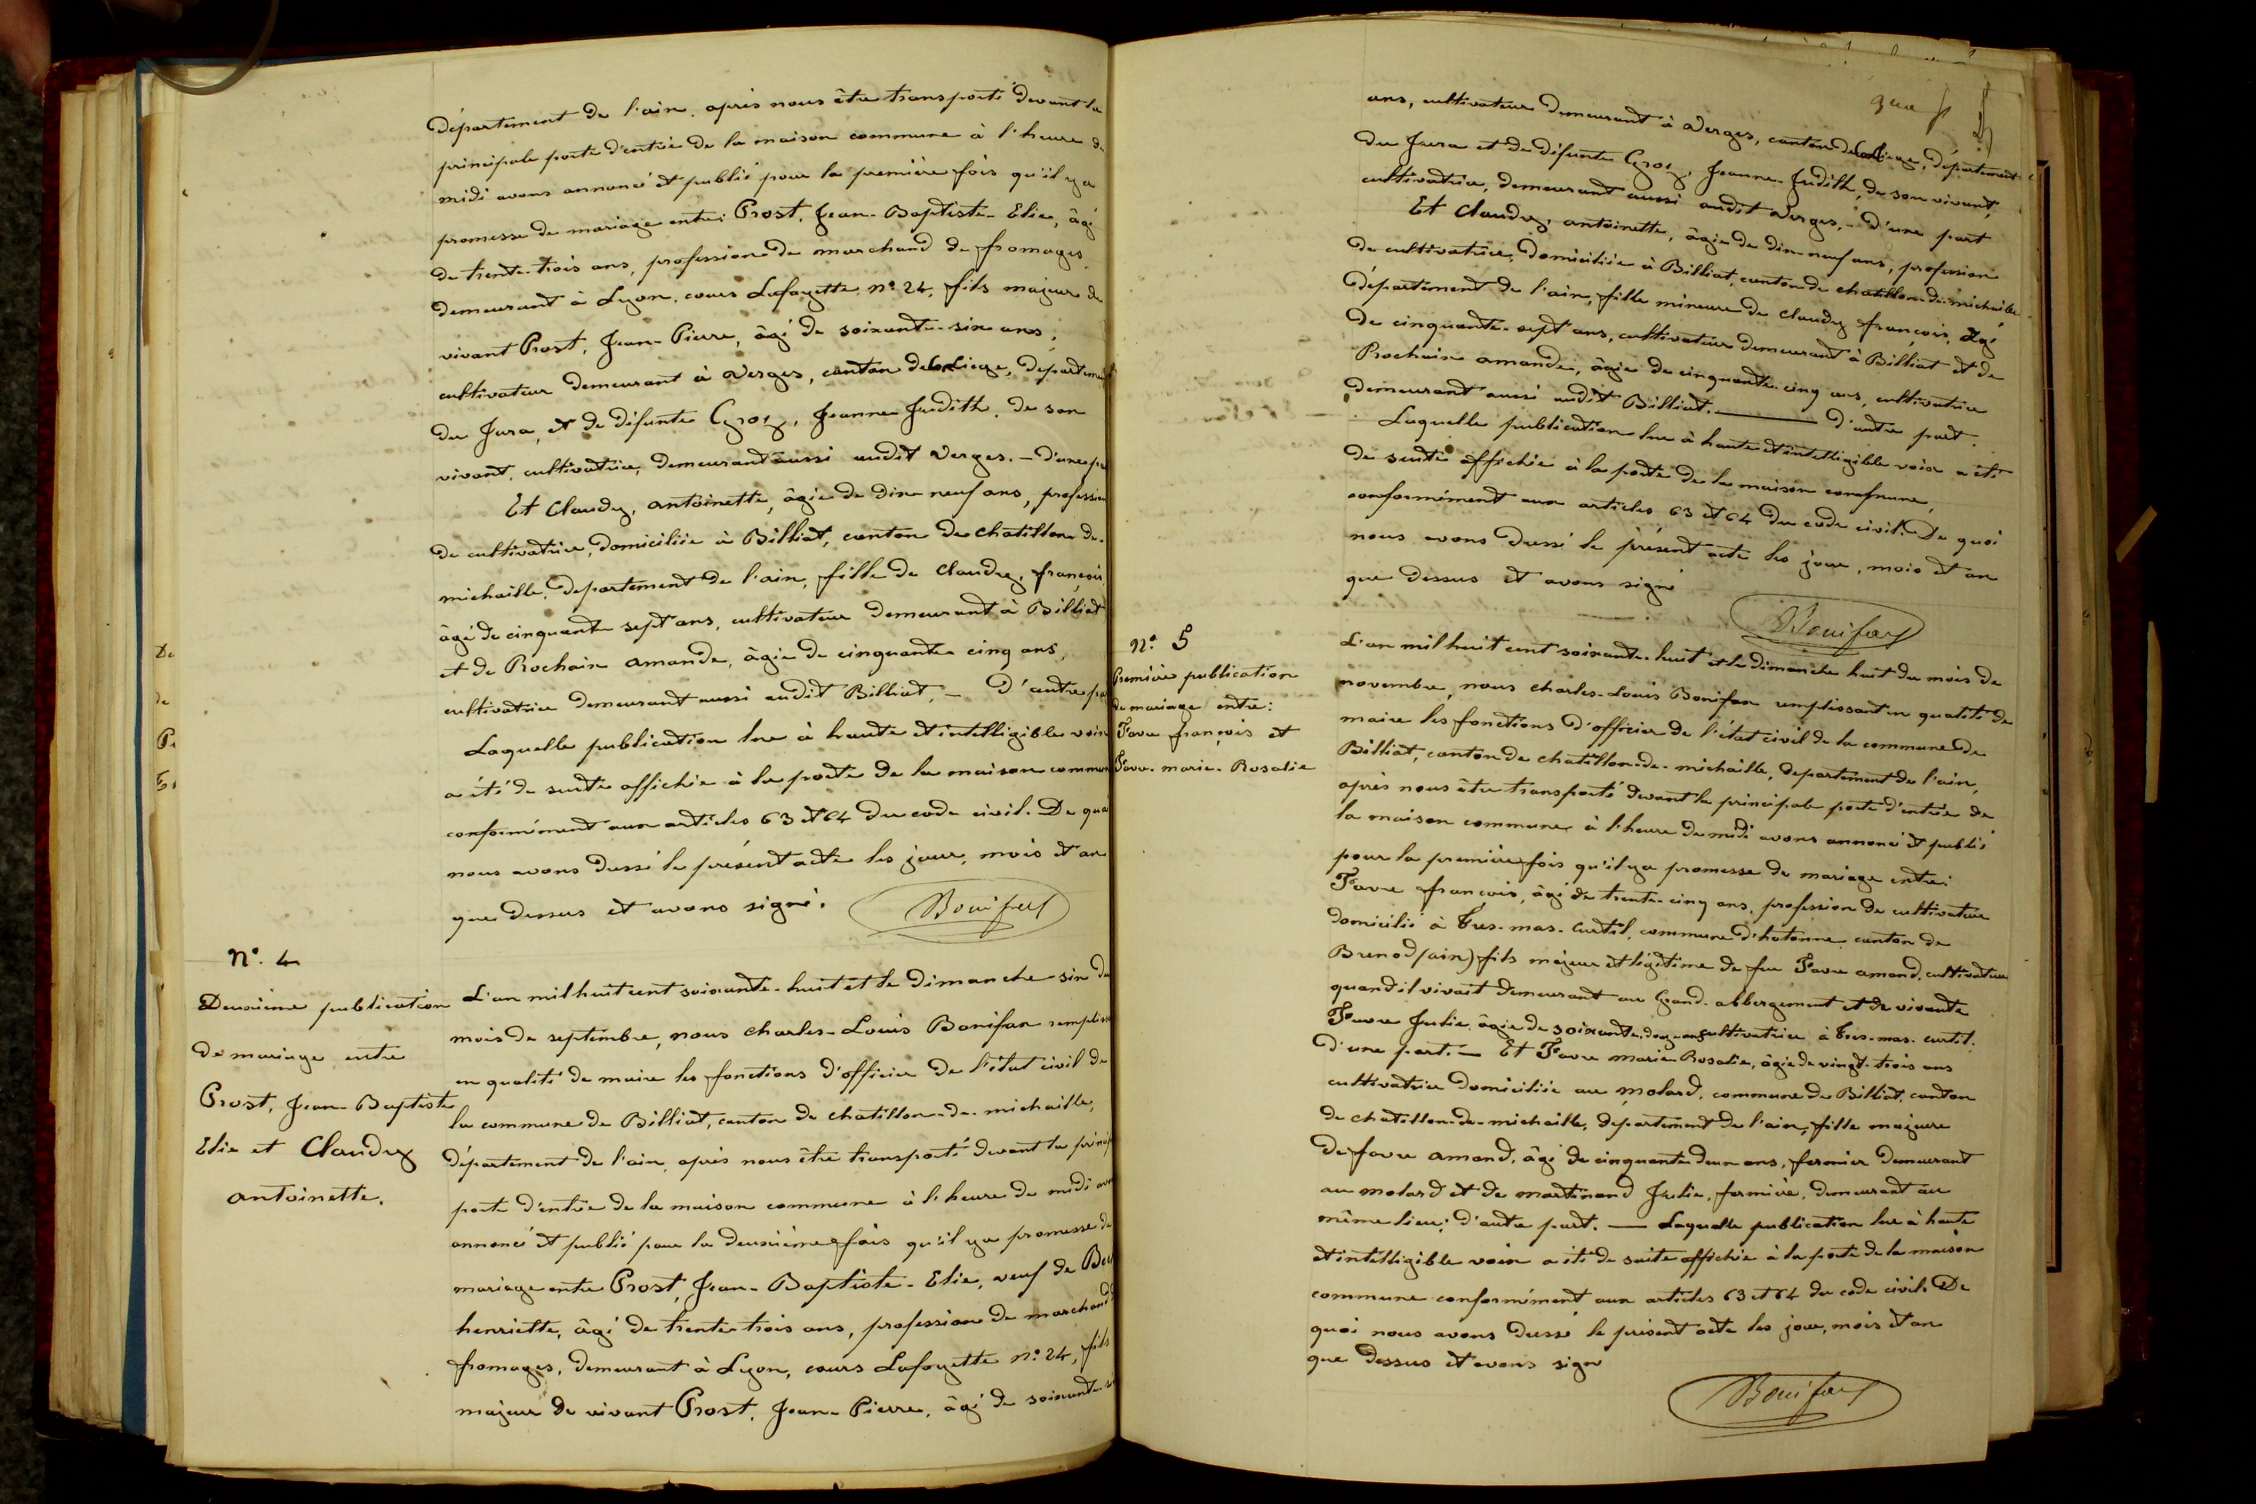 département de l'ain, après nous être transporté devant la
principale porte d'entrée de la maison commune à l'heure de
midi avons annoncé et publié pour la première fois qu'il y a
promesse de mariage entre: Prost, Jean-Baptiste-Elie, âgé
de trente-trois ans, profession de marchand de fromages,
demeurant à Lyon, cours Lafayette n° 24, fils majeur de
vivant Prost, Jean-Pierre, âgé de soixante-six ans,
cultivateur demeurant à Verges, canton de Départem
du Jura, et de défunte Jeanne Judith, de son
vivant, cultivatrice, demeurant aussi audit Verges. — D'une pa
Et Claudy, antoinette, âgée de dix-neuf ans, profession
de cultivatrice, domiciliée à Billiat, canton de Chatillon-de-
michaille, département de l'ain, fille de Claudy, françois,
âgé de cinquante sept ans, cultivateur demeurant à Billiat
et de Rochaix amande, âgée de cinquante cinq ans,
cultivatrice demeurant aussi audit Billiat, — D'autre pa
Laquelle publication lue à haute et intelligible voix
a été de suite affichée à la porte de la maison commun
conformément aux articles 63 et 64 du code civil. De quoi
nous avons dressé le présent acte les jour, mois et an
que dessus et avons signé. Bonifax
N°. 4
Deuxième publication
de mariage entre
Prost, Jean-Baptiste
Elie et Claudy
antoinette.
L'an mil huit cent soixante-huit et le dimanche six du
mois de septembre, nous charles-Louis Bonifax remplissa
en qualité de maire les fonctions d'officier de l'état civil de
la commune de Billiat, canton de chatillon-de-michaille,
département de l'ain, après nous être transporté devant la princip
porte d'entrée de la maison commune à l'heure de midi avo
annoncé et publié pour la deuxième fois qu'il y a promesse de
mariage entre Prost, Jean-Baptiste-Elie, veuf de
henriette, âgé de trente-trois ans, profession de marchand
fromages, demeurant à Lyon, cours Lafayette n° 24, fils
majeur de vivant Prost, Jean-Pierre, âgé de soixante-
ans, cultivateur demeurant à Verges, canton de département
du Jura et de défunte Jeanne-Judith, de son vivant,
cultivatrice, demeurant aussi audit Verges, — d'une part
Et Claudy, antoinette, âgée de dix-neuf ans, profession
de cultivatrice, domiciliée à Billiat, canton de chatillon-de-michaille
département de l'ain, fille mineure de claudy françois, âgé
de cinquante-sept ans, cultivateur demeurant à Billiat et de
Rochaix amande, âgée de cinquante-cinq ans, cultivatrice
demeurant aussi audit Billiat. — d'autre part.
Laquelle publication lue à haute et intelligible voix a été
de suite affichée à la porte de la maison commune,
conformément aux articles 63 et 64 du code civil. De quoi
nous avons dressé le présent acte les jour, mois et an
que dessus et avons signé
Bonifax
N°. 5
Première publication
de mariage entre:
Favre françois et
Favre-marie-Rosalie
L'an mil huit cent soixante-huit et le dimanche huit du mois de
novembre, nous charles-Louis Bonifax remplissant en qualité de
maire les fonctions d'officier de l'état civil de la commune de
Billiat, canton de chatillon-de-michaille, département de l'ain,
après nous être transporté devant la principale porte d'entrée de
la maison commune à l'heure de midi avons annoncé et publié
pour la première fois qu'il y a promesse de mariage entre:
Favre françois, âgé de trente-cinq ans, profession de cultivateur
domicilié à commune d'hotonne canton de
Brenod (ain) fils majeur et légitime de feu Favre amand, cultivateur
quand il vivait demeurant au Grand-abbergement et de vivante
Favre Julie âgée de soixante-douze ans cultivatrice à
d'une part. — Et Favre marie-Rosalie, âgée de vingt-trois ans
cultivatrice domiciliée au molard, commune de Billiat, canton
de chatillon-de-michaille, département de l'ain, fille majeure
de favre amand, âgé de cinquante deux ans, fermier demeurant
au molard et de martinand Julie, fermière, demeurant au
même lieu; d'autre part. — Laquelle publication lue à haute
et intelligible voix a été de suite affichée à la porte de la maison
commune conformément aux articles 63 et 64 du code civil. De
quoi nous avons dressé le présent acte les jour, mois et an
que dessus et avons signé
Bonifax